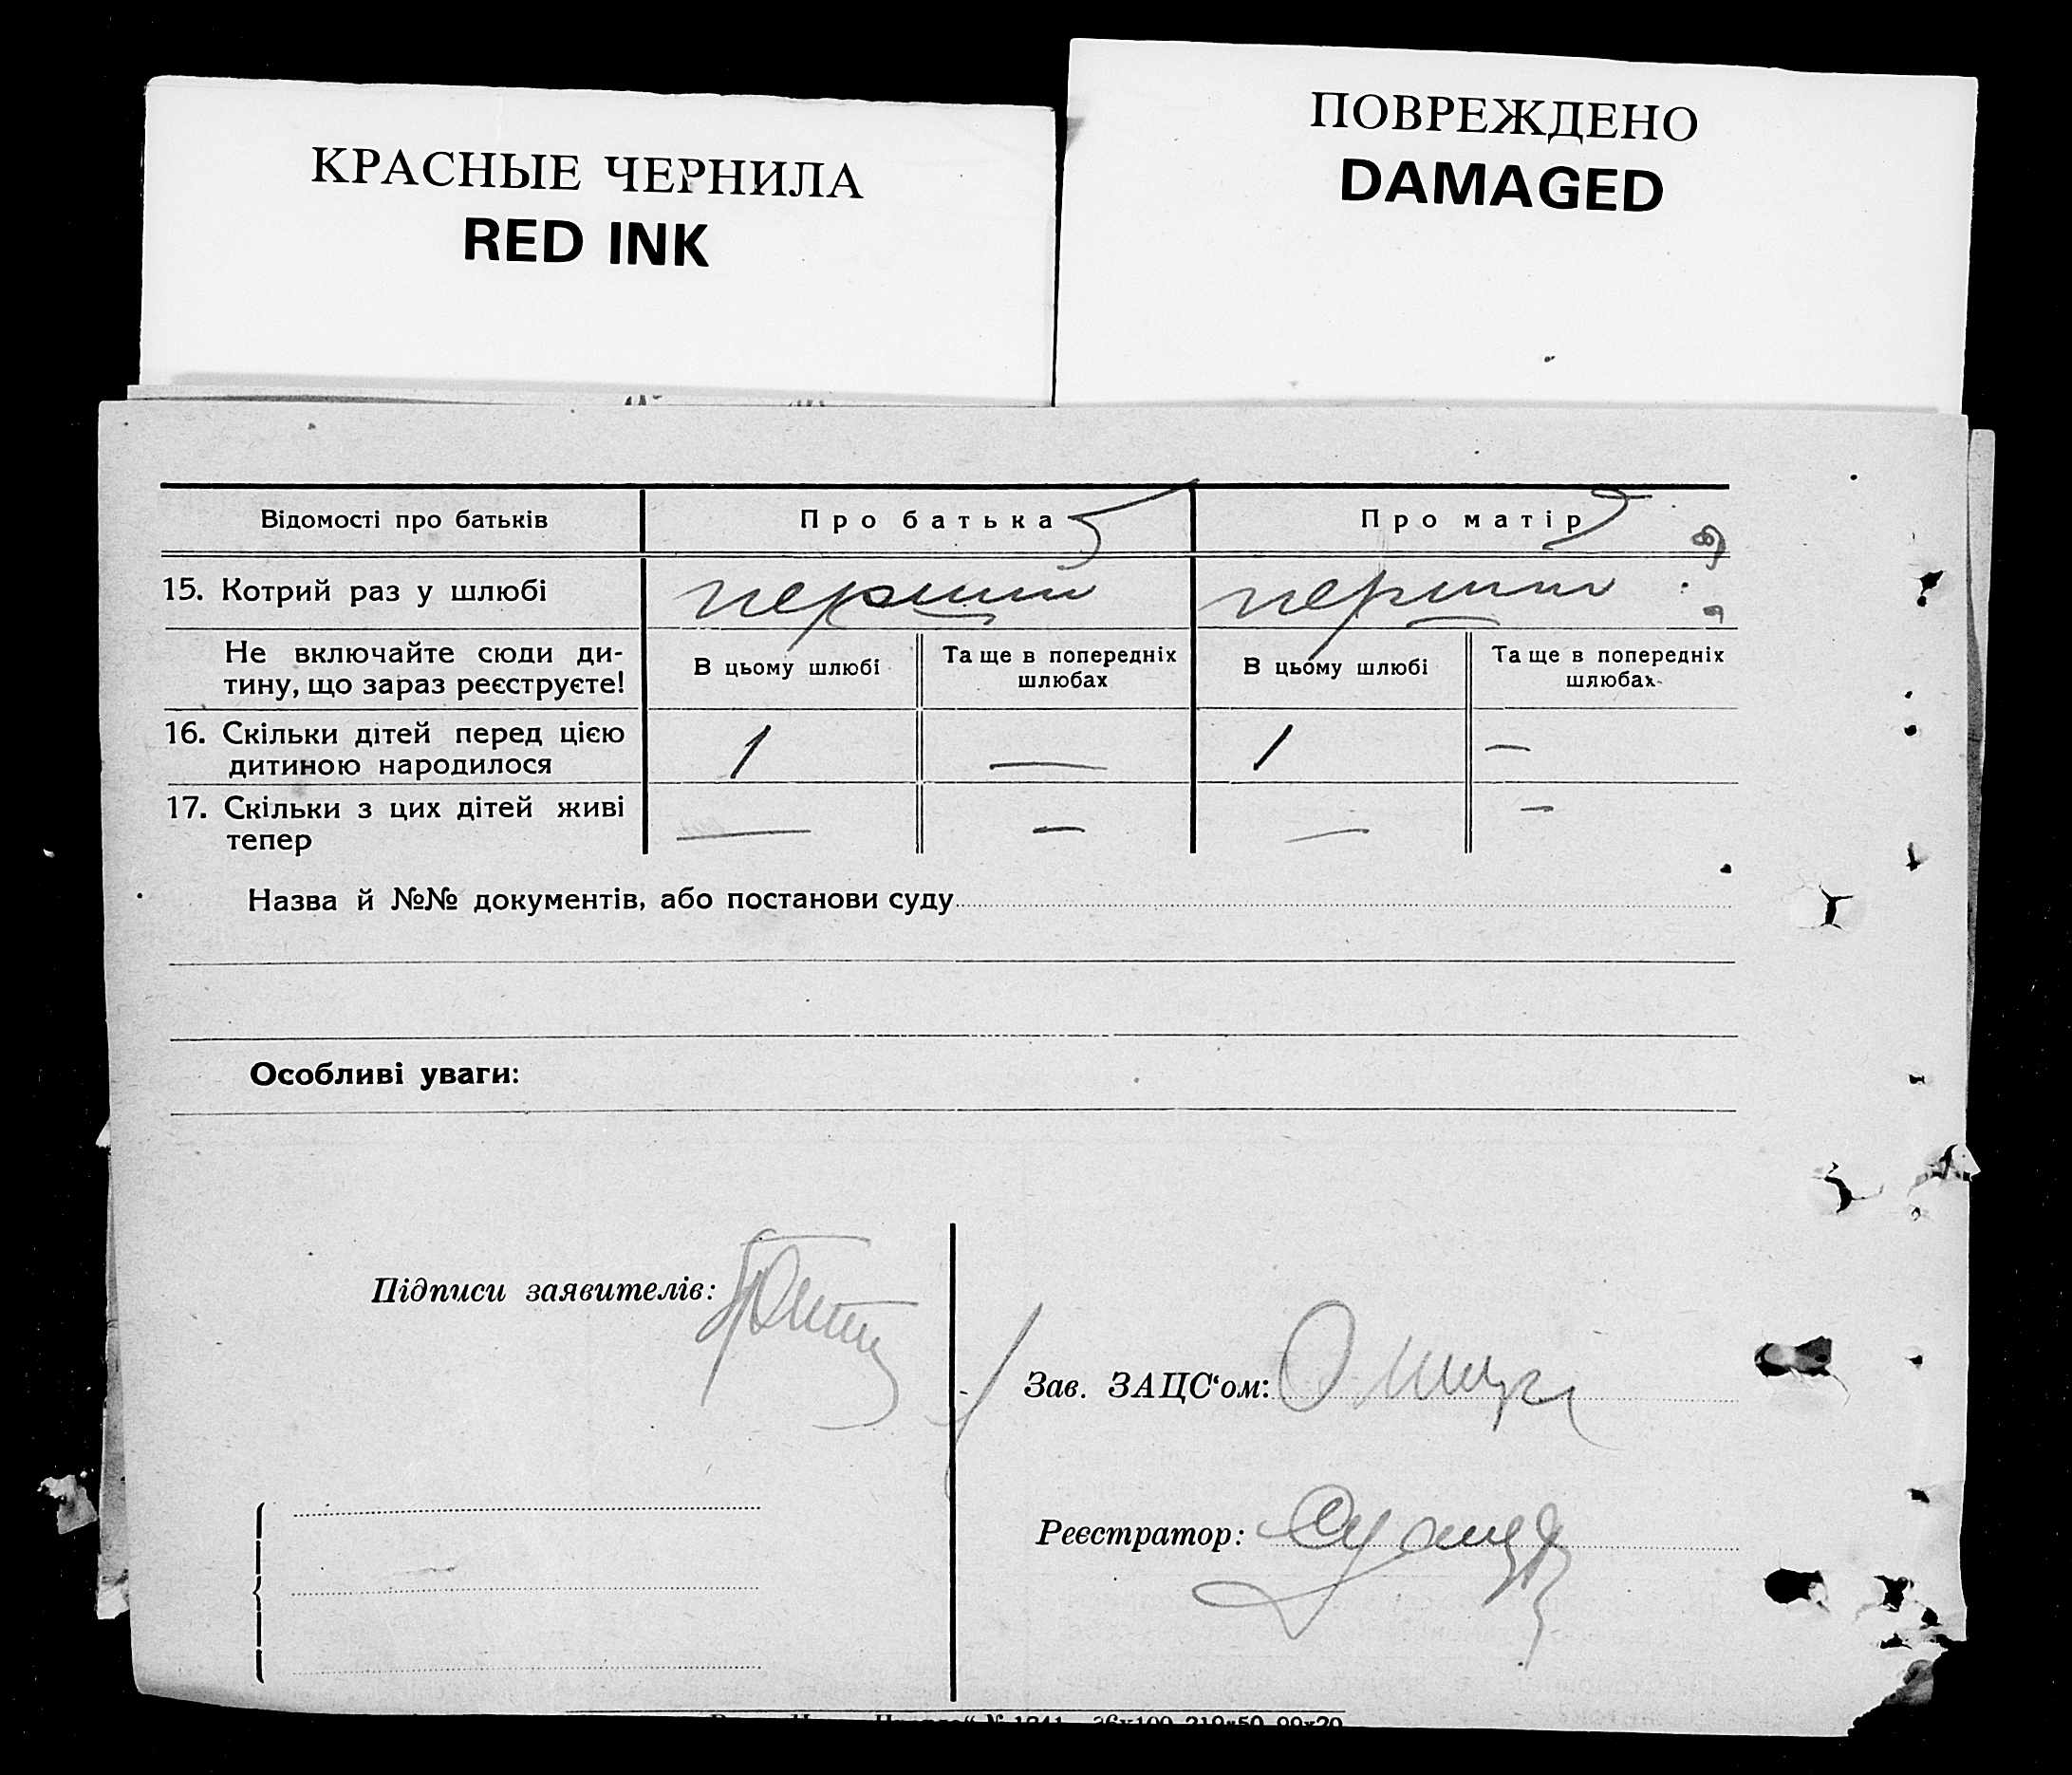 КРАСНЫЕ ЧЕРНИЛА
RED INK
ПОВРЕЖДЕНО
DAMAGED
Відомості про батьків
Про батька
Про матір
15. Котрий раз у шлюбі
перший
перший
Не включайте сюди ди-
тину, що зараз реєструєте!
В цьому шлюбі
Та ще в попередніх
шлюбах
В цьому шлюбі
Та ще в попередніх
шлюбах
16. Скільки дітей перед цією
дитиною народилося
1
—
1
—
17. Скільки з цих дітей живі
тепер
—
—
—
—
Назва й №№ документів, або постанови суду
Особливі уваги:
Підписи заявителів:
Зав. ЗАЦС‘ом:
Реєстратор: